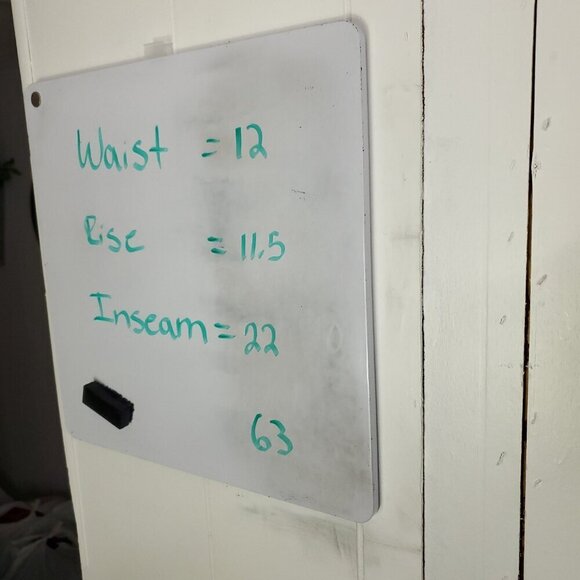 Waist = 12
Rise = 11.5
Inseam = 22
63